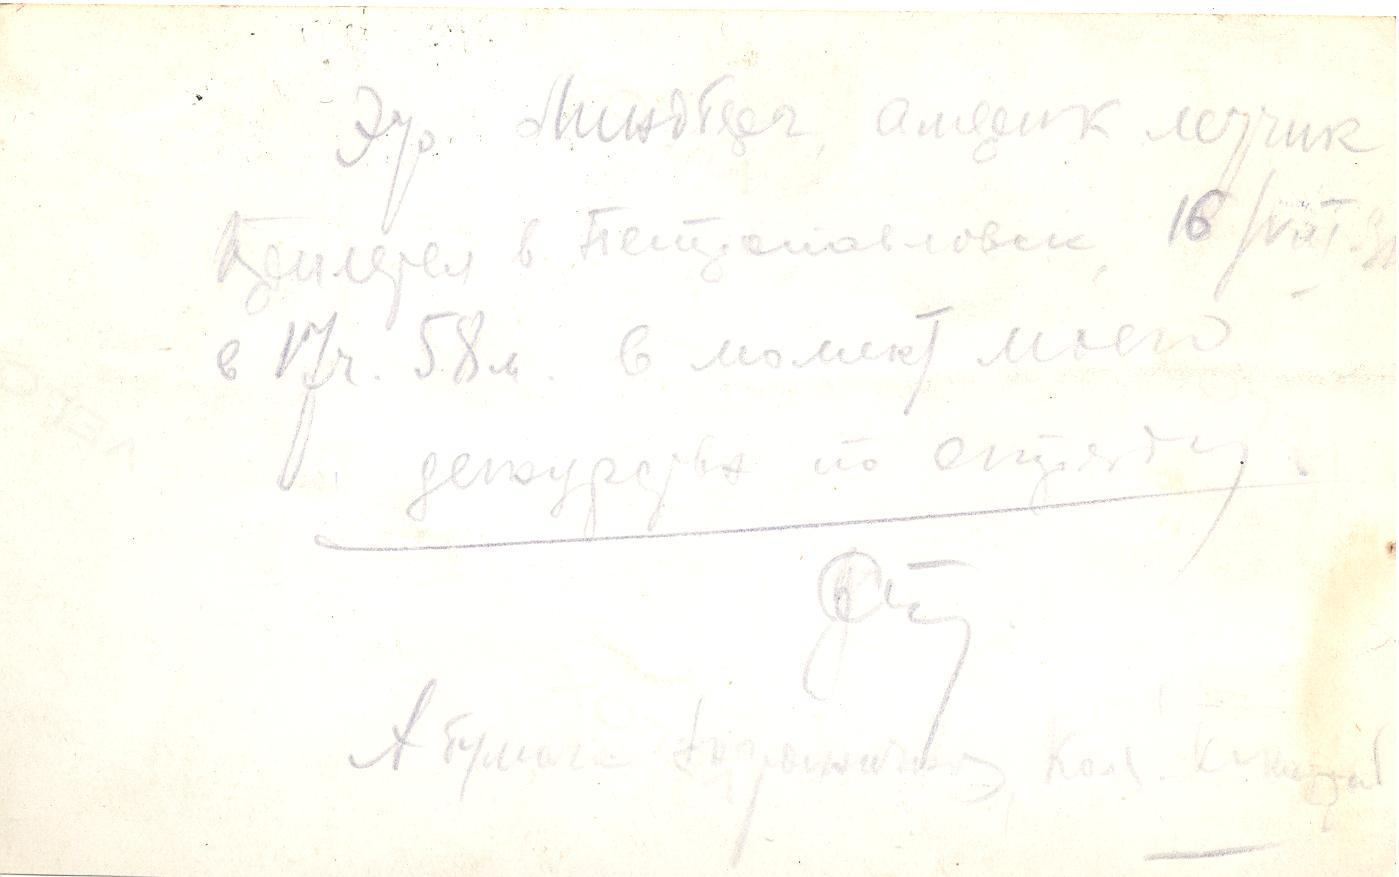 Эр. Линдберг, америк летчик
Прилетел в Петропавловск, 16/VIII
в 17ч. 58м. в момент моего
дежурства по отряду.
А бумага